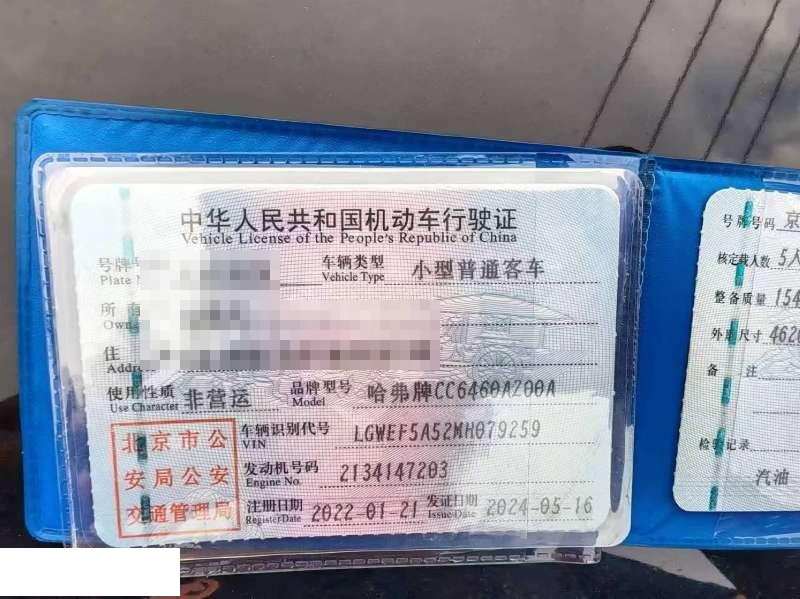 中华人民共和国机动车行驶证
Vehicle License of the People's Republic of China
号牌号
Plate N
车辆类型
Vehicle Type
小型普通客车
所有
Own
住
Addre
使用性质
Use Character
非营运
品牌型号
Model
哈弗牌CC6460AZ00A
北京市公
安局公安
交通管理局
车辆识别代号
VIN
LGWEF5A52MH079259
发动机号码
Engine No.
2134147203
注册日期
Register Date
2022-01-21
发证日期
Issue Date
2024-05-16
号牌号码 京
核定载人数 5人
整备质量 154
外廓尺寸 4620
备 注
检验记录
汽油